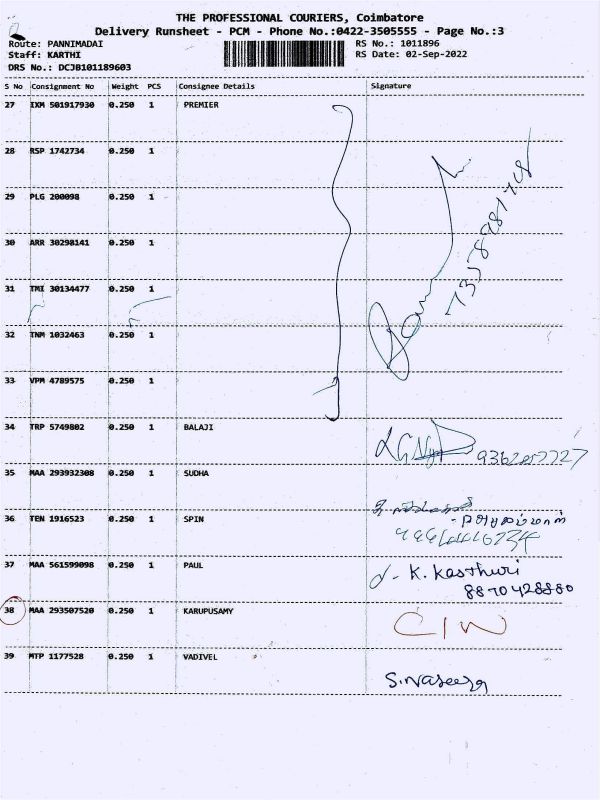 THE PROFESSIONAL COURIERS, Coimbatore
Delivery Runsheet - PCM - Phone No.:0422-3505555 - Page No.:3
Route: PANNIMADAI RS No.: 1011896
Staff: KARTHI RS Date: 02-Sep-2022
DRS No.: DCJB101189603
S No Consignment No Weight PCS Consignee Details Signature
27 IXM 501917930 0.250 1 PREMIER
28 RSP 1742734 0.250 1
29 PLG 200098 0.250 1
30 ARR 30298141 0.250 1
31 TMI 30134477 0.250 1
32 TNM 1032463 0.250 1
33 VPM 4789575 0.250 1
34 TRP 5749802 0.250 1 BALAJI
35 MAA 293932308 0.250 1 SUDHA
36 TEN 1916523 0.250 1 SPIN
37 MAA 561599098 0.250 1 PAUL K. Kasthuri
8870428880
38 MAA 293507520 0.250 1 KARUPUSAMY CIN
39 MTP 1177528 0.250 1 VADIVEL S.Naseera